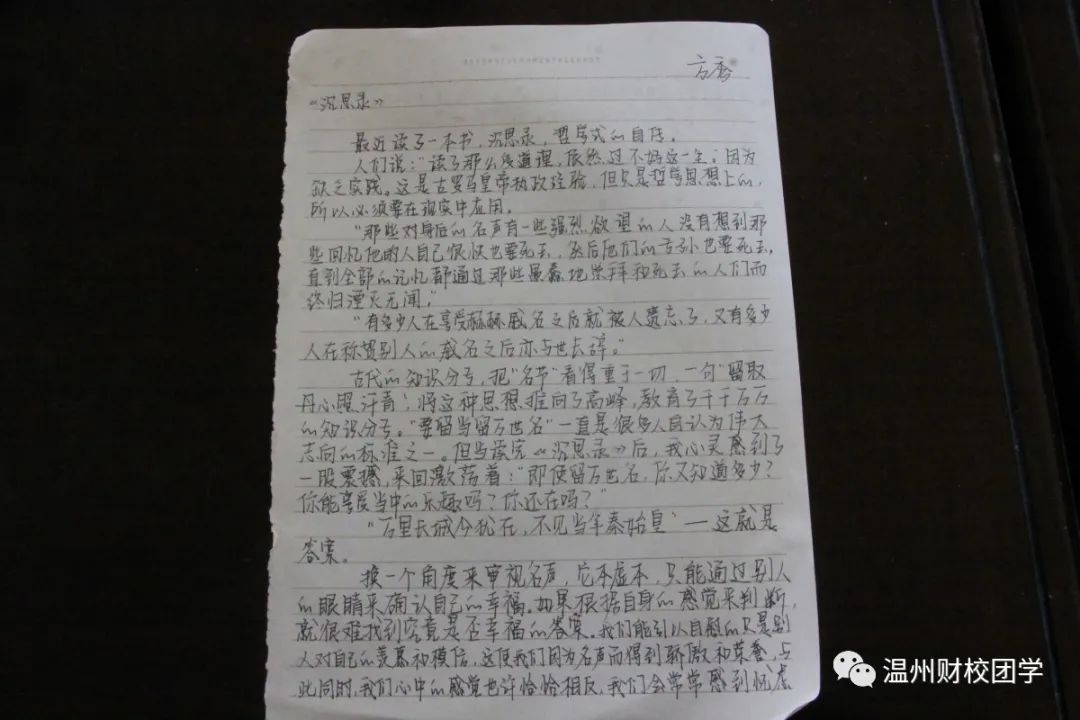 方香
《沉思录》
最近读了一本书，沉思录，哲学式的自传。
人们说："读了那么多道理，依然过不好这一生。因为
缺乏实践。这是古罗马皇帝执政经验，但只是哲学思想上的，
所以必须要在现实中应用。
"那些对身后的名声有一些强烈欲望的人没有想到那
些回忆他的人自己很快也要死去，然后他们的子孙也要死去，
直到全部的记忆都通过那些愚蠢地崇拜和死去的人们而
终归湮灭无闻。"
"有多少人在享受赫赫威名之后就被人遗忘了，又有多少
人在称赞别人的威名之后亦与世长辞。"
古代的知识分子，把"名节"看得重于一切，一句"留取
丹心照汗青"，将这种思想推向了高峰，教育了千千万万
的知识分子。"要留当留万世名"一直是很多人自认为伟大
志向的标准之一。但当读完《沉思录》后，我心灵感到了
一股震撼，来回激荡着："即使留万世名，你又知道多少？
你能享受当中的乐趣吗？你还在吗？"
"万里长城今犹在，不见当年秦始皇"——这就是
答案。
换一个角度来审视名声，它本虚本，只能通过别人
的眼睛来确认自己的幸福。如果根据自身的感觉来判断，
就很难找到究竟是否幸福的答案。我们能引以自慰的只是别
人对自己的羡慕和模仿，这使我们因为名声而得到骄傲和荣誉，与
此同时，我们心中的感觉也许恰恰相反，我们会常常感到忧虑
温州财校团学